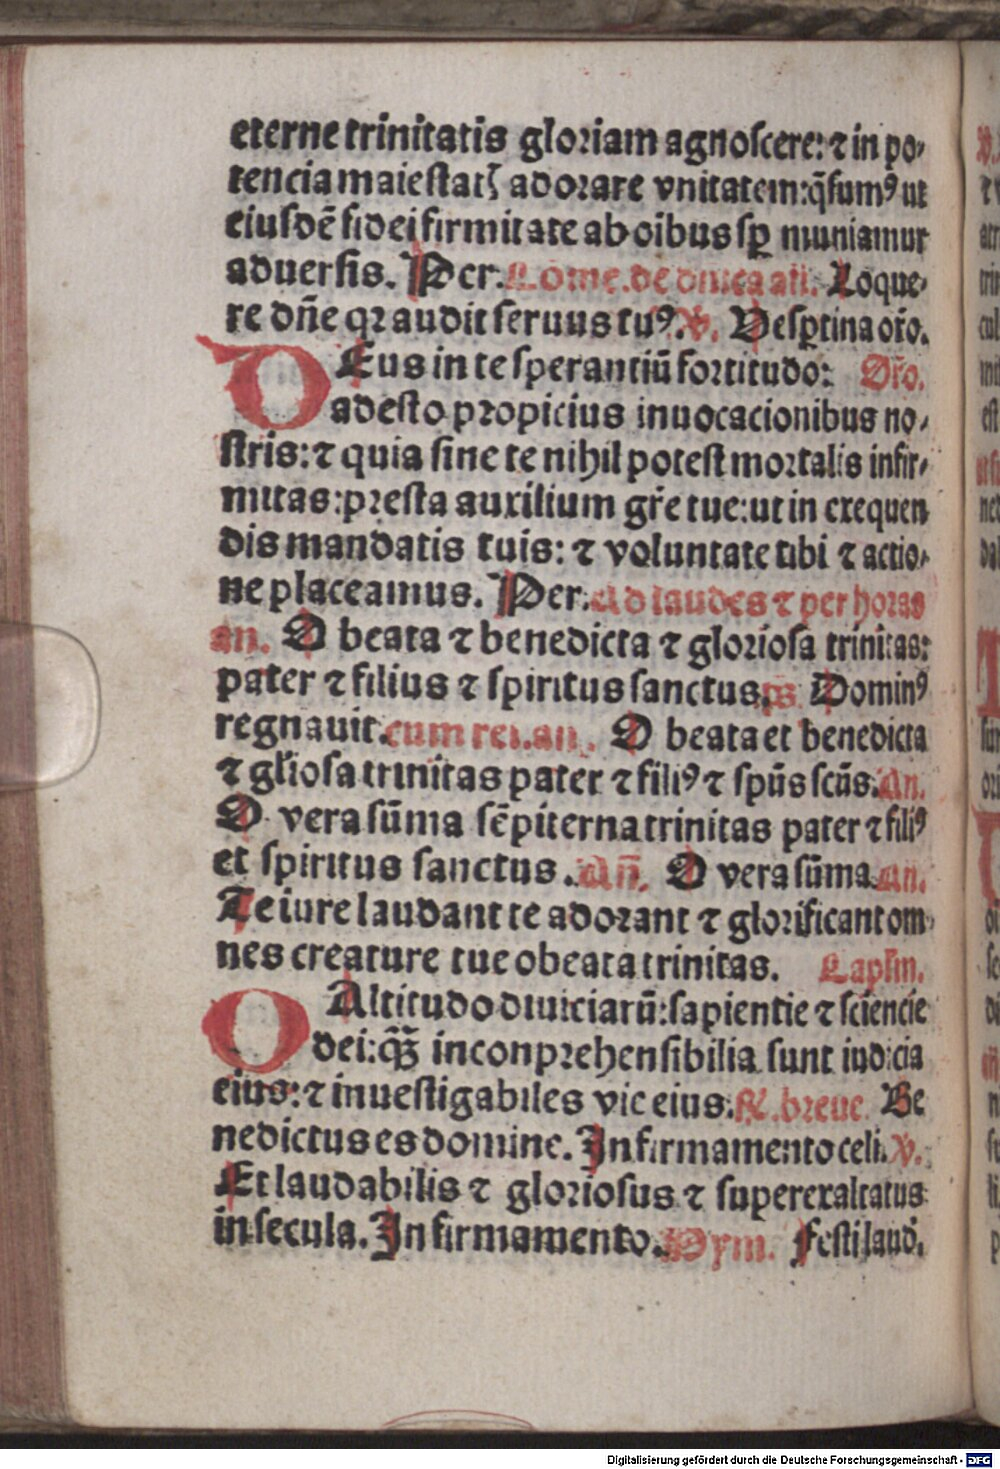 eterne trinitatis gloriam agnoscere: ⁊ in po⸗
tencia maiestatꝭ adorare vnitatem: q̄sumꝰ ut
eiusdē fidei firmitate ab oībus sꝑ muniamur
aduersis. Per. Com̄e. de dn̄ica añ. Loque⸗
re dn̄e qꝛ audit seruus tuꝰ. ℣. Vesꝑtina or̄o.
DEus in te sperantiū fortitudo: Or̄o.
adesto propicius inuocacionibus no⸗
stris: ⁊ quia sine te nihil potest mortalis infir⸗
mitas: presta auxilium gr̄e tue: ut in exequen
dis mandatis tuis: ⁊ voluntate tibi ⁊ actio⸗
ne placeamus. Per. Ad laudes ⁊ per horas
an. O beata ⁊ benedicta ⁊ gloriosa trinitas:
pater ⁊ filius ⁊ spiritus sanctus. ps. Dominꝰ
regnauit. cum rel. an. O beata et benedicta
⁊ gl̄iosa trinitas pater ⁊ filiꝰ ⁊ spūs scūs. An.
O vera sūma sēpiterna trinitas pater ⁊ filiꝰ
et spiritus sanctus. An̄. O vera sūma. An.
Te iure laudant te adorant ⁊ glorificant om⸗
nes creature tue o beata trinitas. Capl̄m.
O Altitudo diuiciarū: sapientie ⁊ sciencie
dei: qꝫ̄ inconprehensibilia sunt iudicia
eius: ⁊ inuestigabiles vie eius. ℟. breue. Be
nedictus es domine. In firmamento celi. ℣.
Et laudabilis ⁊ gloriosus ⁊ superexaltatus
in secula. In firmamento. Hym. Festi laud̄.
Digitalisierung gefördert durch die Deutsche Forschungsgemeinschaft - DFG